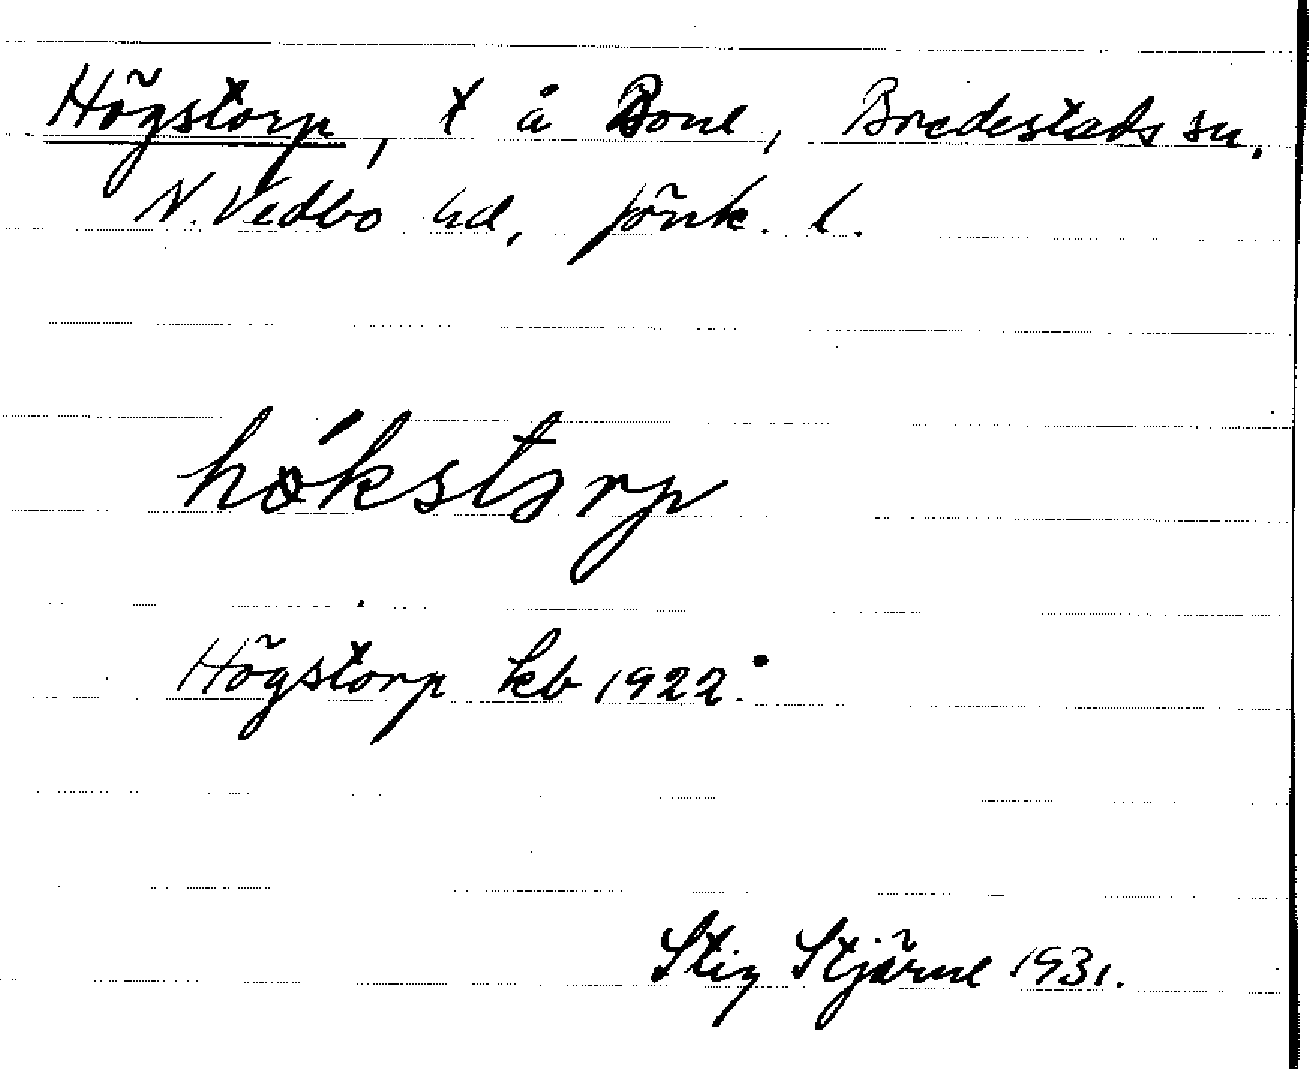 Högstorp, t å Bone, Bredestads sn,
N. Vedbo hd, Jönk. l.
hökstorp
Högstorp kb 1922.
Stig Stjärne 1931.